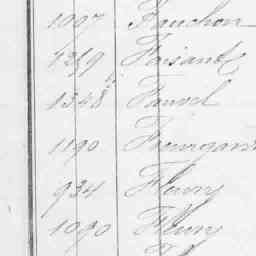 1007 Fauchon
1219 Faisant
1348 Fauvel
1190
934 Fleury
1090 Fleury